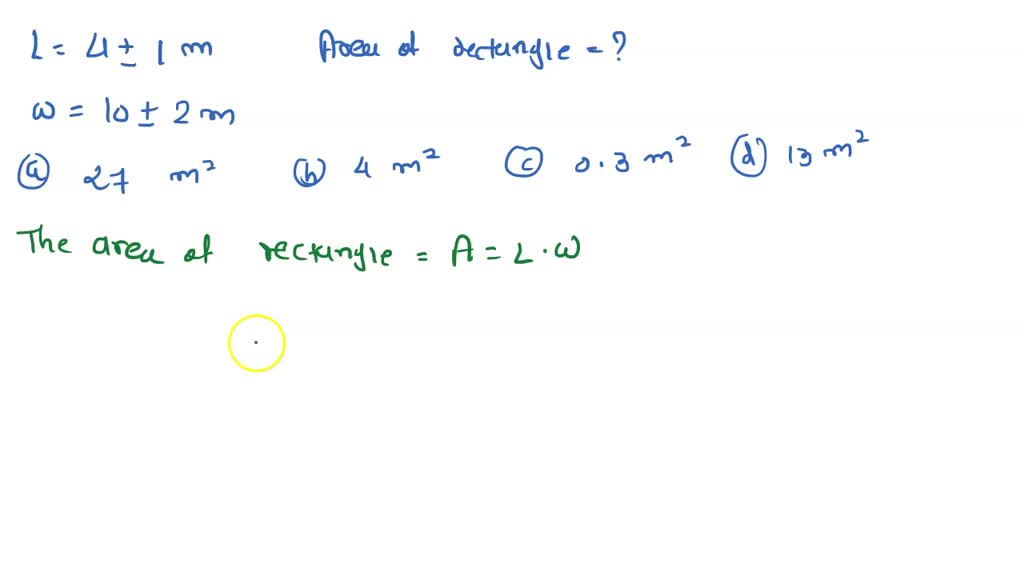 L = 4 ± 1 m Area of rectangle = ?
ω = 10 ± 2 m
(a) 27 m² (b) 4 m² (c) 0.3 m² (d) 13 m²
The area of rectangle = A = L · ω